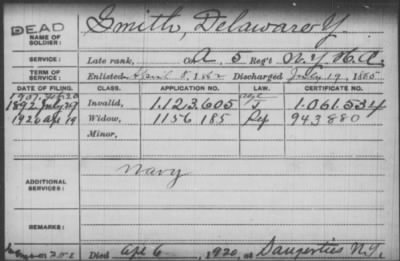 DEAD
NAME OF SOLDIER: Smith, Delaware Y.
SERVICE: Late rank, Co. A, 5 Reg't N.Y. H.A.
TERM OF SERVICE: Enlisted April 8, 1862 Discharged July 19, 1865
DATE OF FILING. CLASS. APPLICATION NO. LAW. CERTIFICATE NO.
1892 July 29 Invalid, 1.123.605 J 1.061.534
1920 Apl 19 Widow, 1156 185 943880
Minor,
ADDITIONAL SERVICES: Navy
REMARKS:
Died Apl 6, 1920, at Saugerties N.Y.